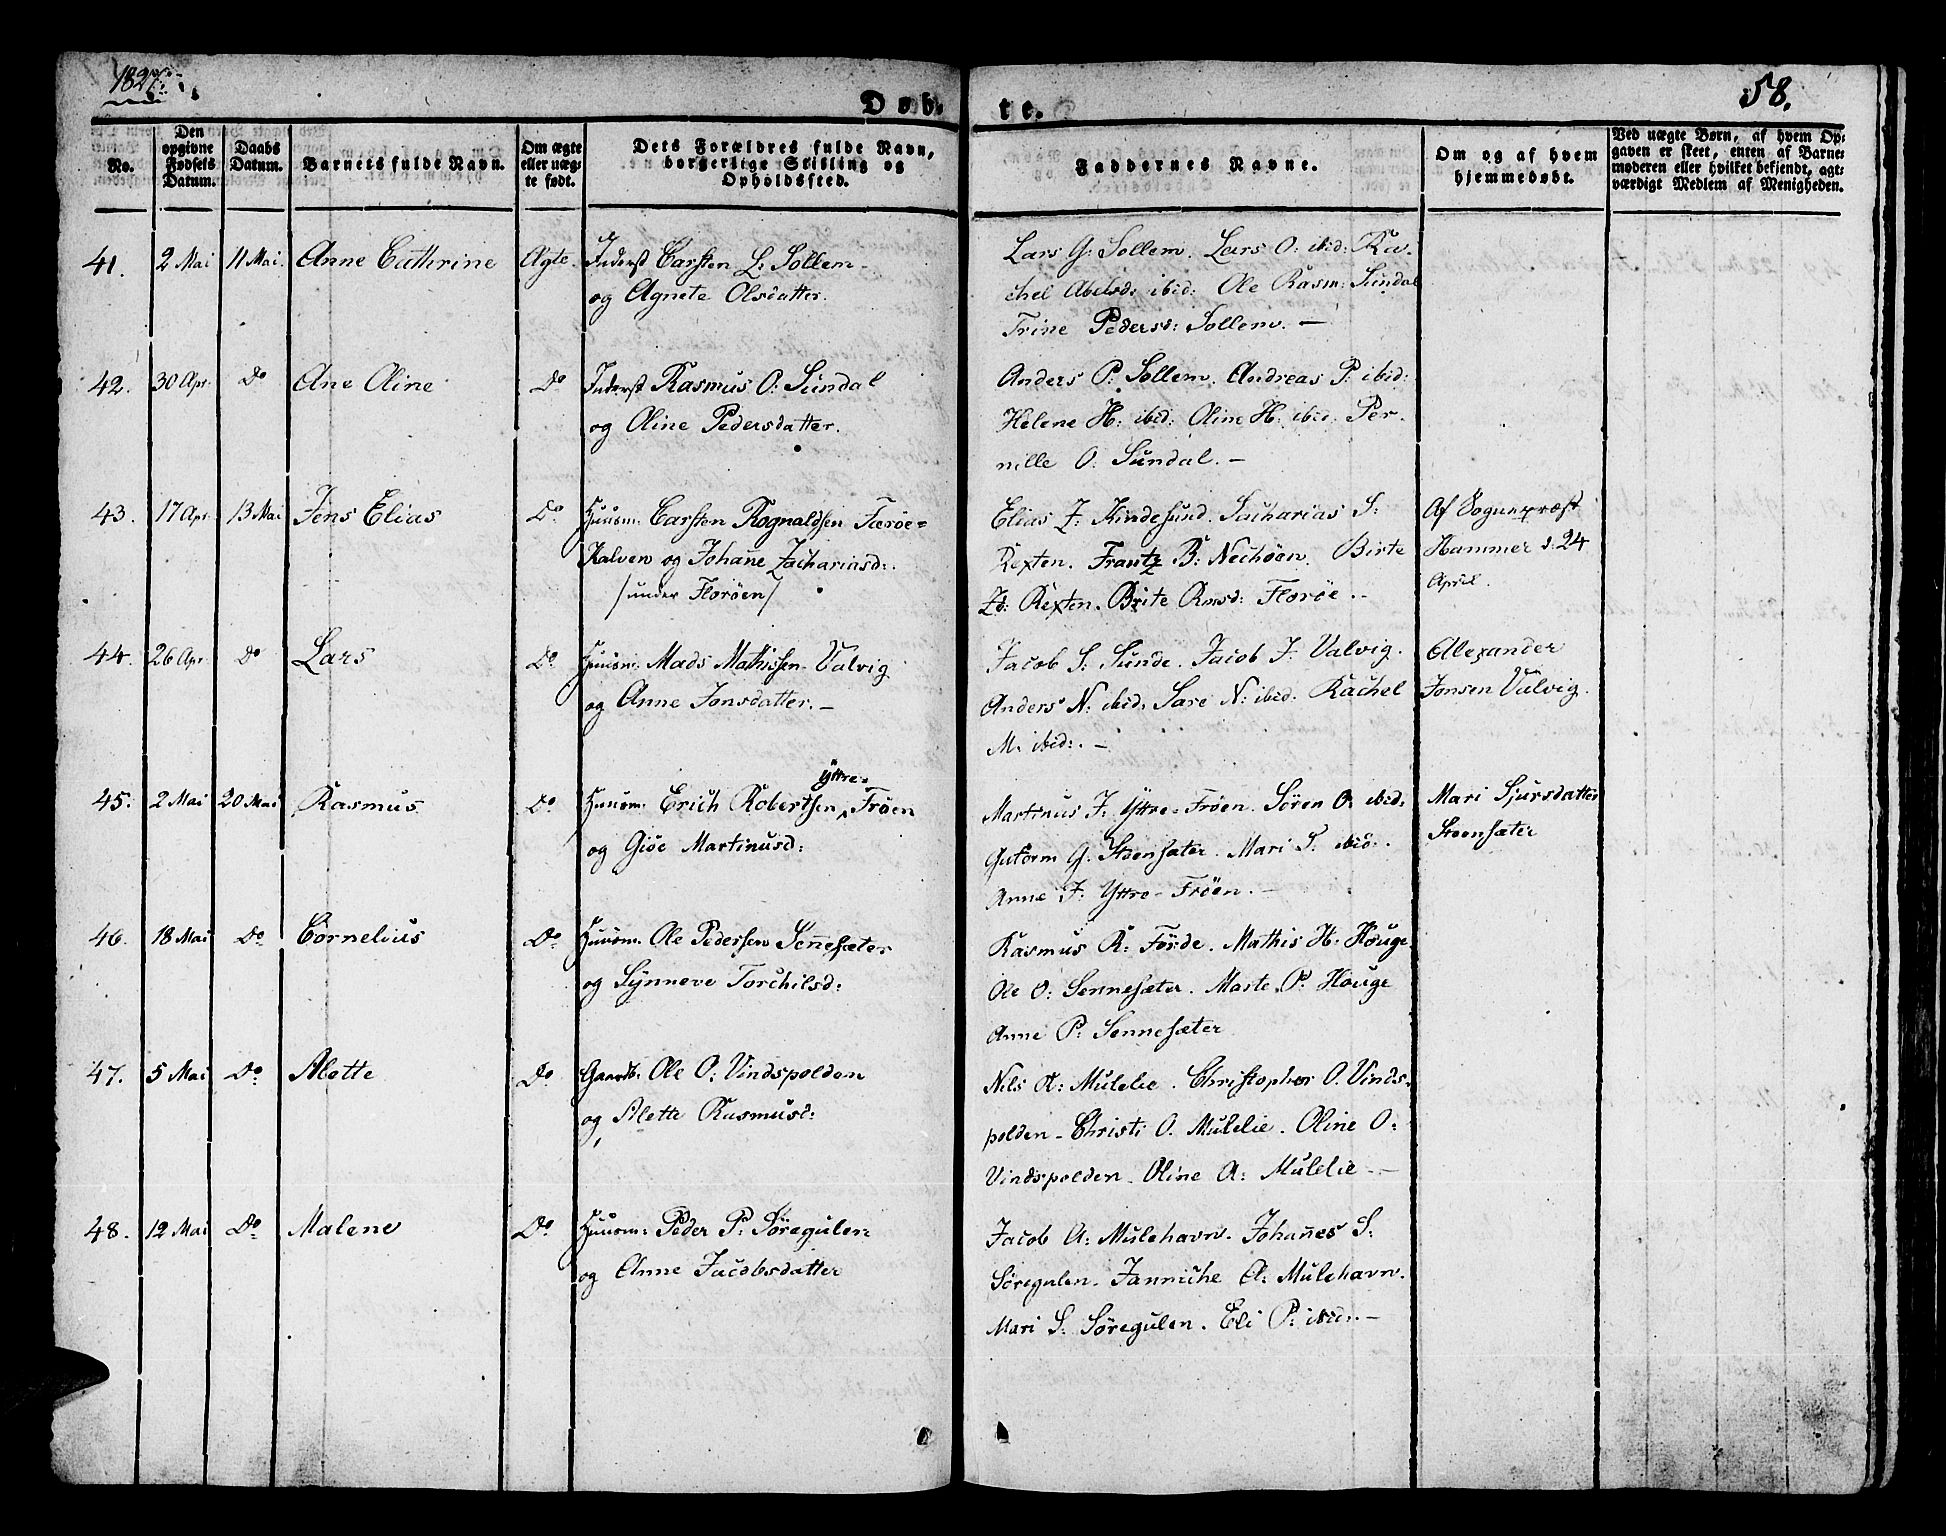 1827.
58.
Døb- te.
No.
Den opgivne Fødsels Datum.
Daabs Datum.
Barnets fulde Navn.
Om ægte eller uægte født.
Dets Forældres fulde Navn, borgerlige Stilling og Opholdssted.
Faddernes Navne.
Om og af hvem hjemmedøbt.
Ved uægte Børn, af hvem Opgaven er skeet, enten af Barnemoderen eller hvilket bekjendt, agtværdigt Medlem af Menigheden.
41. 2 Mai 11 Mai. Anne Cathrine Ægte. Inderst Carsten L: Sollem
og Agnete Olsdatter.
Lars G: Sollem. Lars O: ibid: Ra-
chel Abelsd: ibid: Ole Rasm: Sundal
Trine Pedersd: Sollem. —
42. 30 Apr. Do Ane Oline Do Inderst Rasmus O: Sundal
og Oline Pedersdatter.
Anders P: Sollem. Andreas P: ibid:
Helene H: ibid: Oline H: ibid: Per-
nille O: Sundal. —
43. 17 Apr. 13 Mai Jens Elias Do Huusm: Carsten Rognaldsen Færøe=
Kalven og Johanne Zachariasd:
/under Florøen/
Elias Z: Kindesund. Zacharias S:
Rexten. Frantz B: Nechøen. Birte
Zd: Rexten. Brite Rasd: Florøe.
Af Sognepræst
Hammer d: 24
April.
44. 26 Apr. Do Lars Do Huusm: Mads Mathissen Valvig
og Anne Jonsdatter. —
Jacob S: Sunde. Jacob J: Valvig.
Anders N: ibid: Sare N: ibid: Rachel
M: ibid:. —
Alexander
Jonsen Valvig.
45. 2 Mai 20 Mai Rasmus Do Huusm: Erich Robertsen Yttre- Frøen
og Giøe Martinusd:
Martinus J: Yttre-Frøen. Søren O: ibid:
Gutorm G: Steensæter. Mari S: ibid:.
Anne J: Yttre-Frøen. —
Mari Sjursdatter
Steensæter
46. 18 Mai Do Cornelius Do. Huusm: Ole Pedersen Sennesæter
og Synneve Torchilsd:
Rasmus R: Førde. Mathis H: Houge
Ole O: Sennesæter. Marte P: Houge
Anne P: Sennesæter
47. 5 Mai Do. Alette Do Gaardb: Ole O: Vindspolden
og Alette Rasmusd:
Nils A: Mulelie. Christopher O. Vinds-
polden - Christi O. Mulelie. Oline O:
Vindspolden. Oline A: Mulelie —
48. 12 Mai Do. Malene Do. Huusm: Peder P: Søregulen
og Anne Jacobsdatter
Jacob A: Mulehavn. Johannes S:
Søregulen. Janniche A: Mulehavn.
Mari S: Søregulen. Eli P: ibid:. —